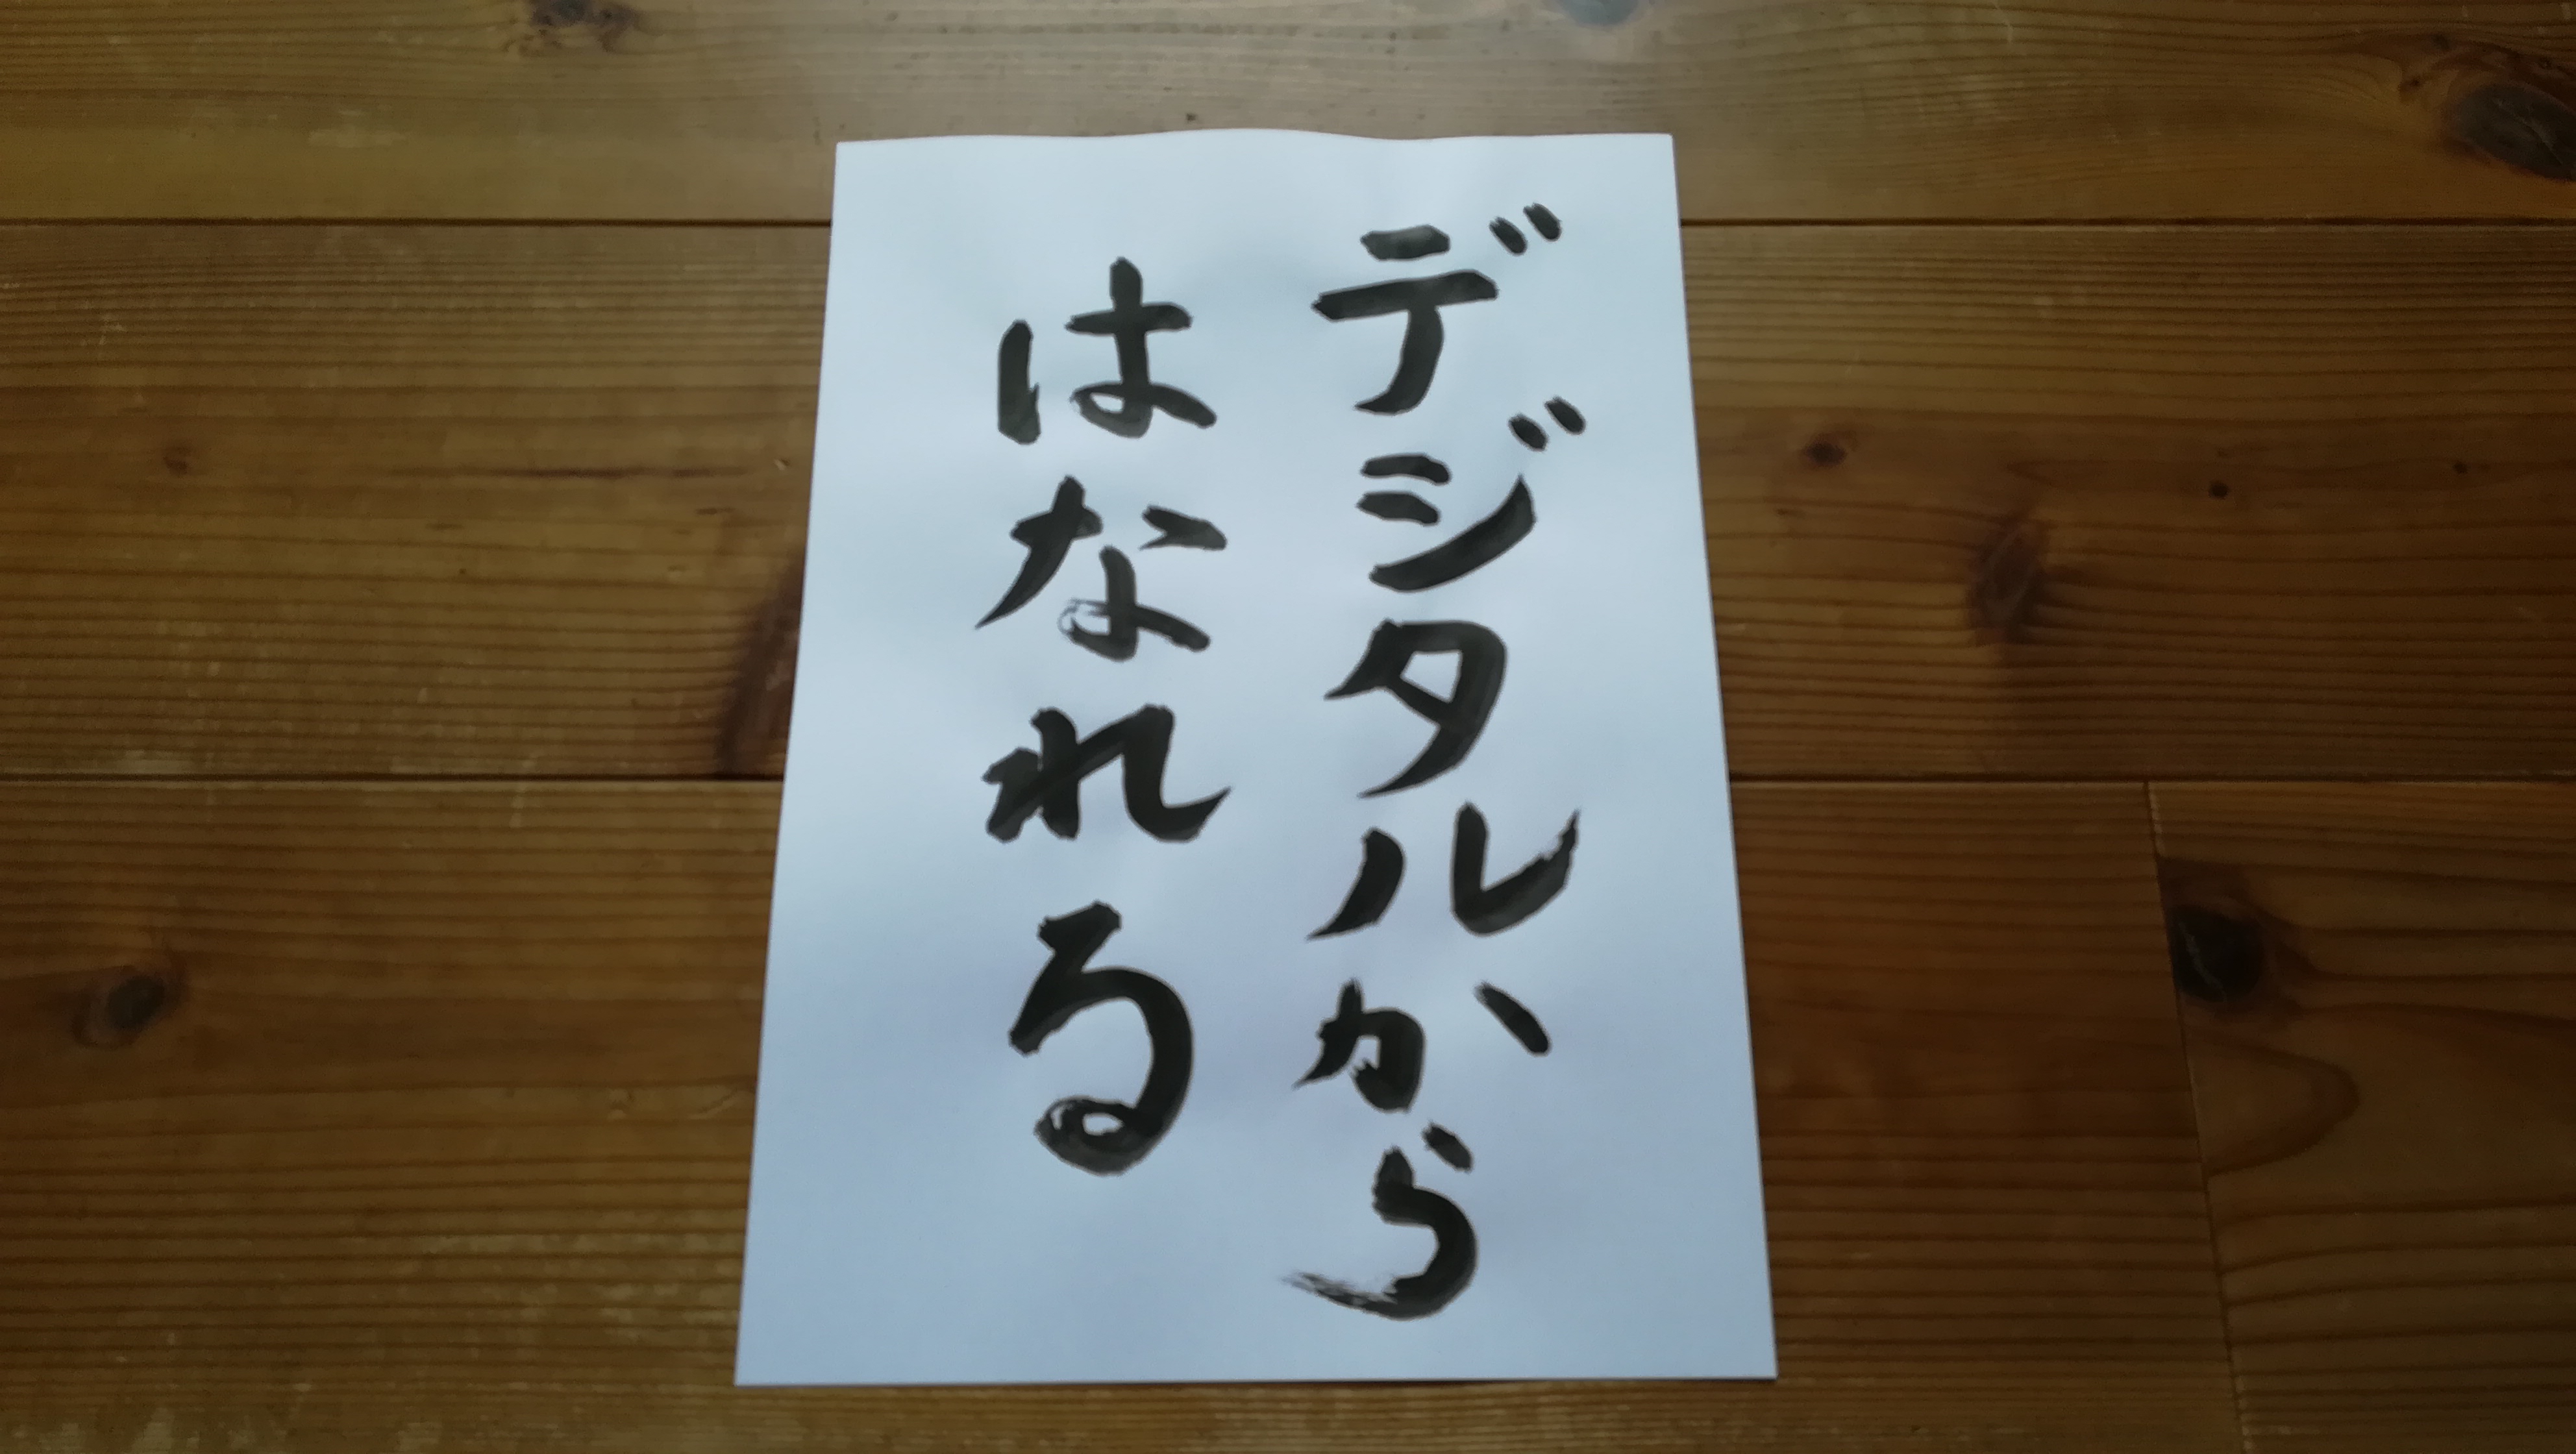 デジタルから
はなれる